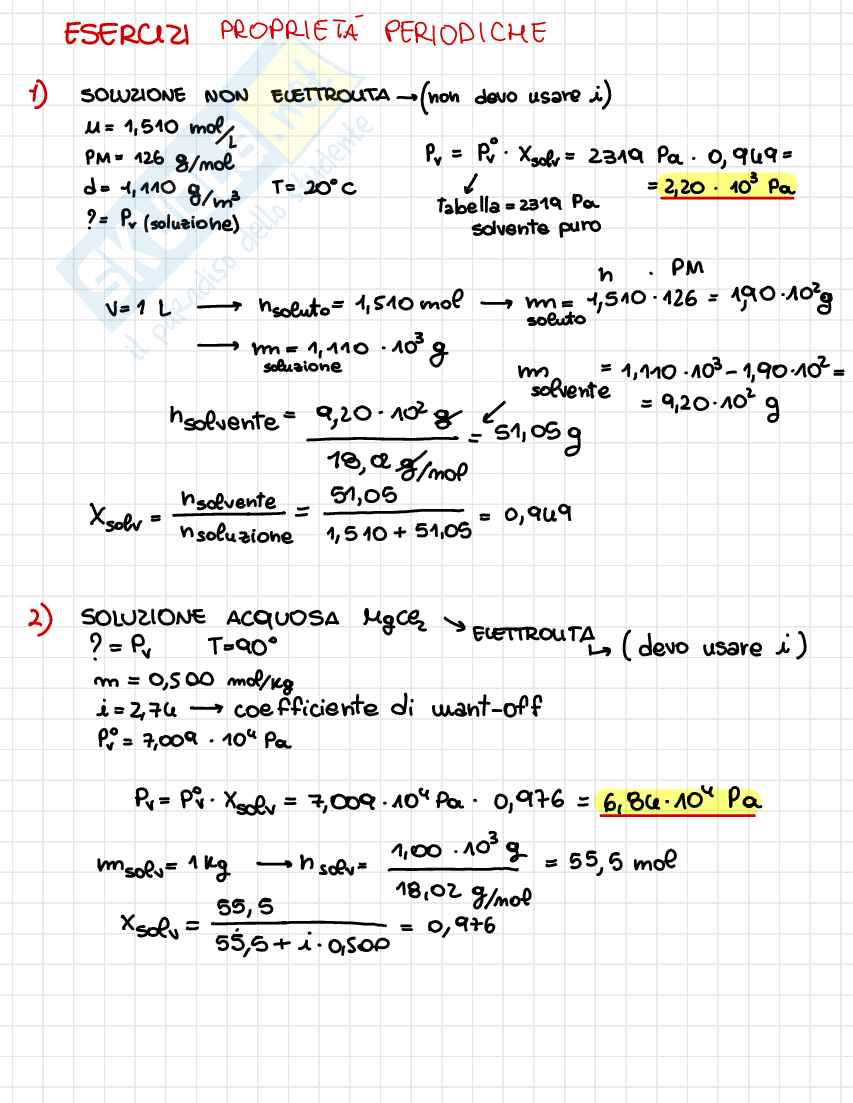 ESERCIZI PROPRIETÀ PERIODICHE
1) SOLUZIONE NON ELETTROLITA → (non devo usare i)
M = 1,510 mol/L
PM = 126 g/mol
d = 1,110 g/m³ T = 20°C
? = Pv (soluzione)
Pv = P°v · Xsolv = 2319 Pa · 0,949 =
= 2,20 · 10³ Pa
Tabella = 2319 Pa
solvente puro
V = 1 L → nsoluto = 1,510 mol → m soluto = 1,510 · 126 = 1,90 · 10² g
n · PM
→ m soluzione = 1,110 · 10³ g
m solvente = 1,110 · 10³ − 1,90 · 10² =
= 9,20 · 10² g
nsolvente = 9,20 · 10² g / 18,02 g/mol = 51,05 g
Xsolv = nsolvente / nsoluzione = 51,05 / 1,510 + 51,05 = 0,949
2) SOLUZIONE ACQUOSA MgCl₂ → ELETTROLITA → (devo usare i)
? = Pv T = 90°
m = 0,500 mol/kg
i = 2,74 → coefficiente di want-off
P°v = 7,009 · 10⁴ Pa
Pv = P°v · Xsolv = 7,009 · 10⁴ Pa · 0,976 = 6,84 · 10⁴ Pa
msolv = 1 kg → nsolv = 1,00 · 10³ g / 18,02 g/mol = 55,5 mol
Xsolv = 55,5 / 55,5 + i · 0,500 = 0,976
SKUOLA.net
il paradiso dello studente